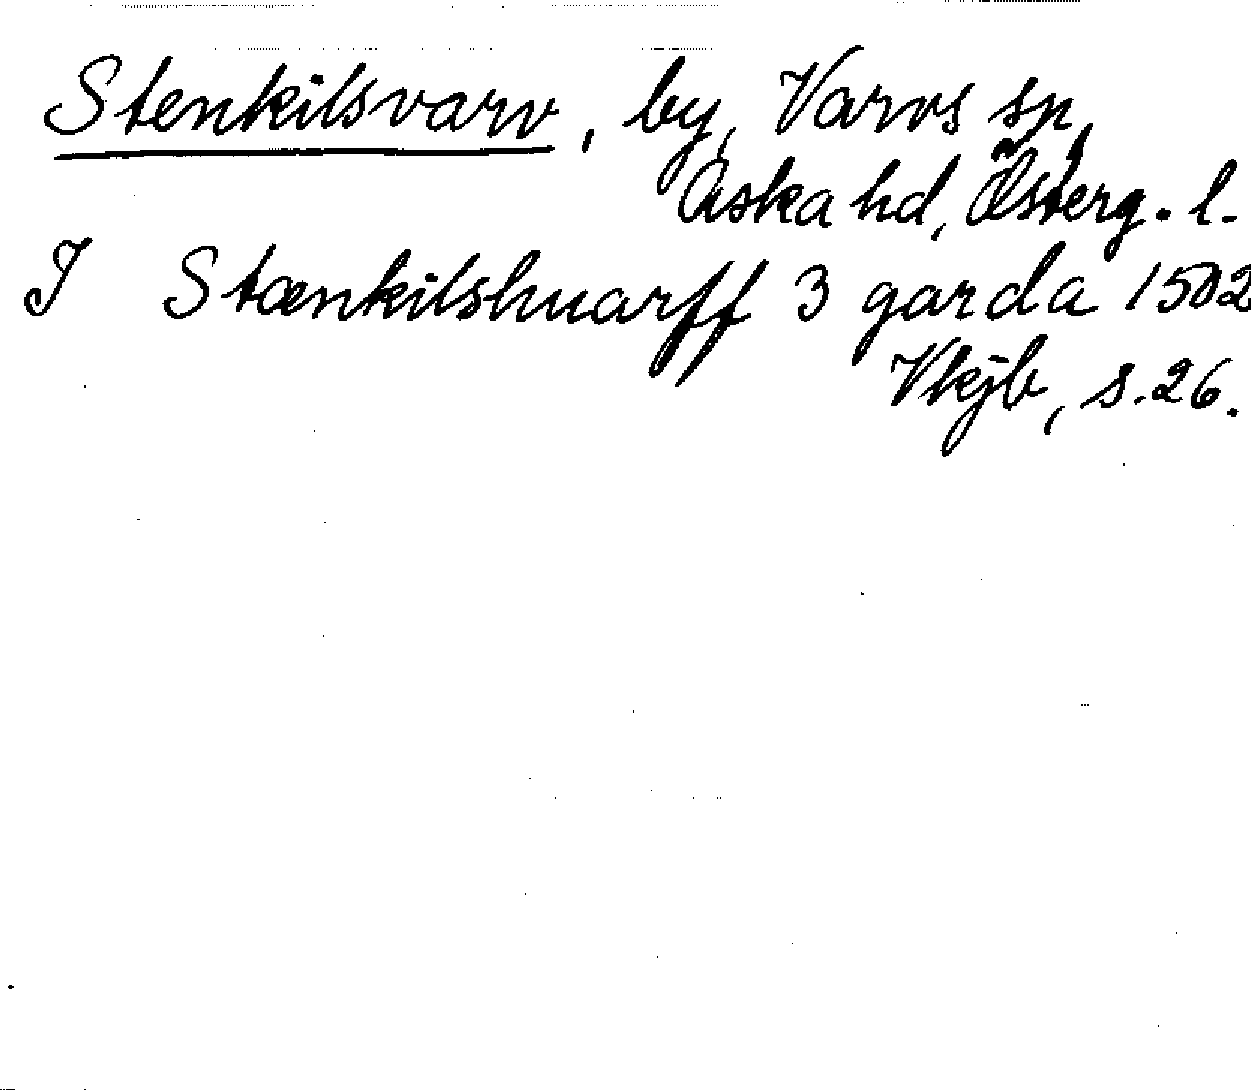 Stenkilsvarv, by, Varvs sn,
Aska hd, Österg. l.
J Stænkilshuarff 3 garda 1502
Vkjb, s. 26.